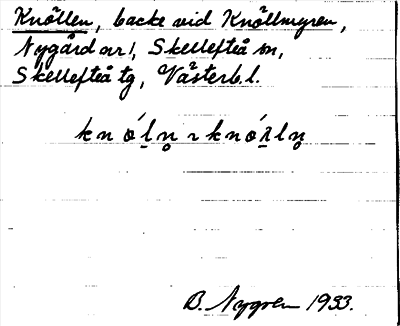 Knöllen, backe vid Knöllmyren,
Nygård nr 1, Skellefteå sn,
Skellefteå tg, Västerb. l.
B. Nygren 1933.